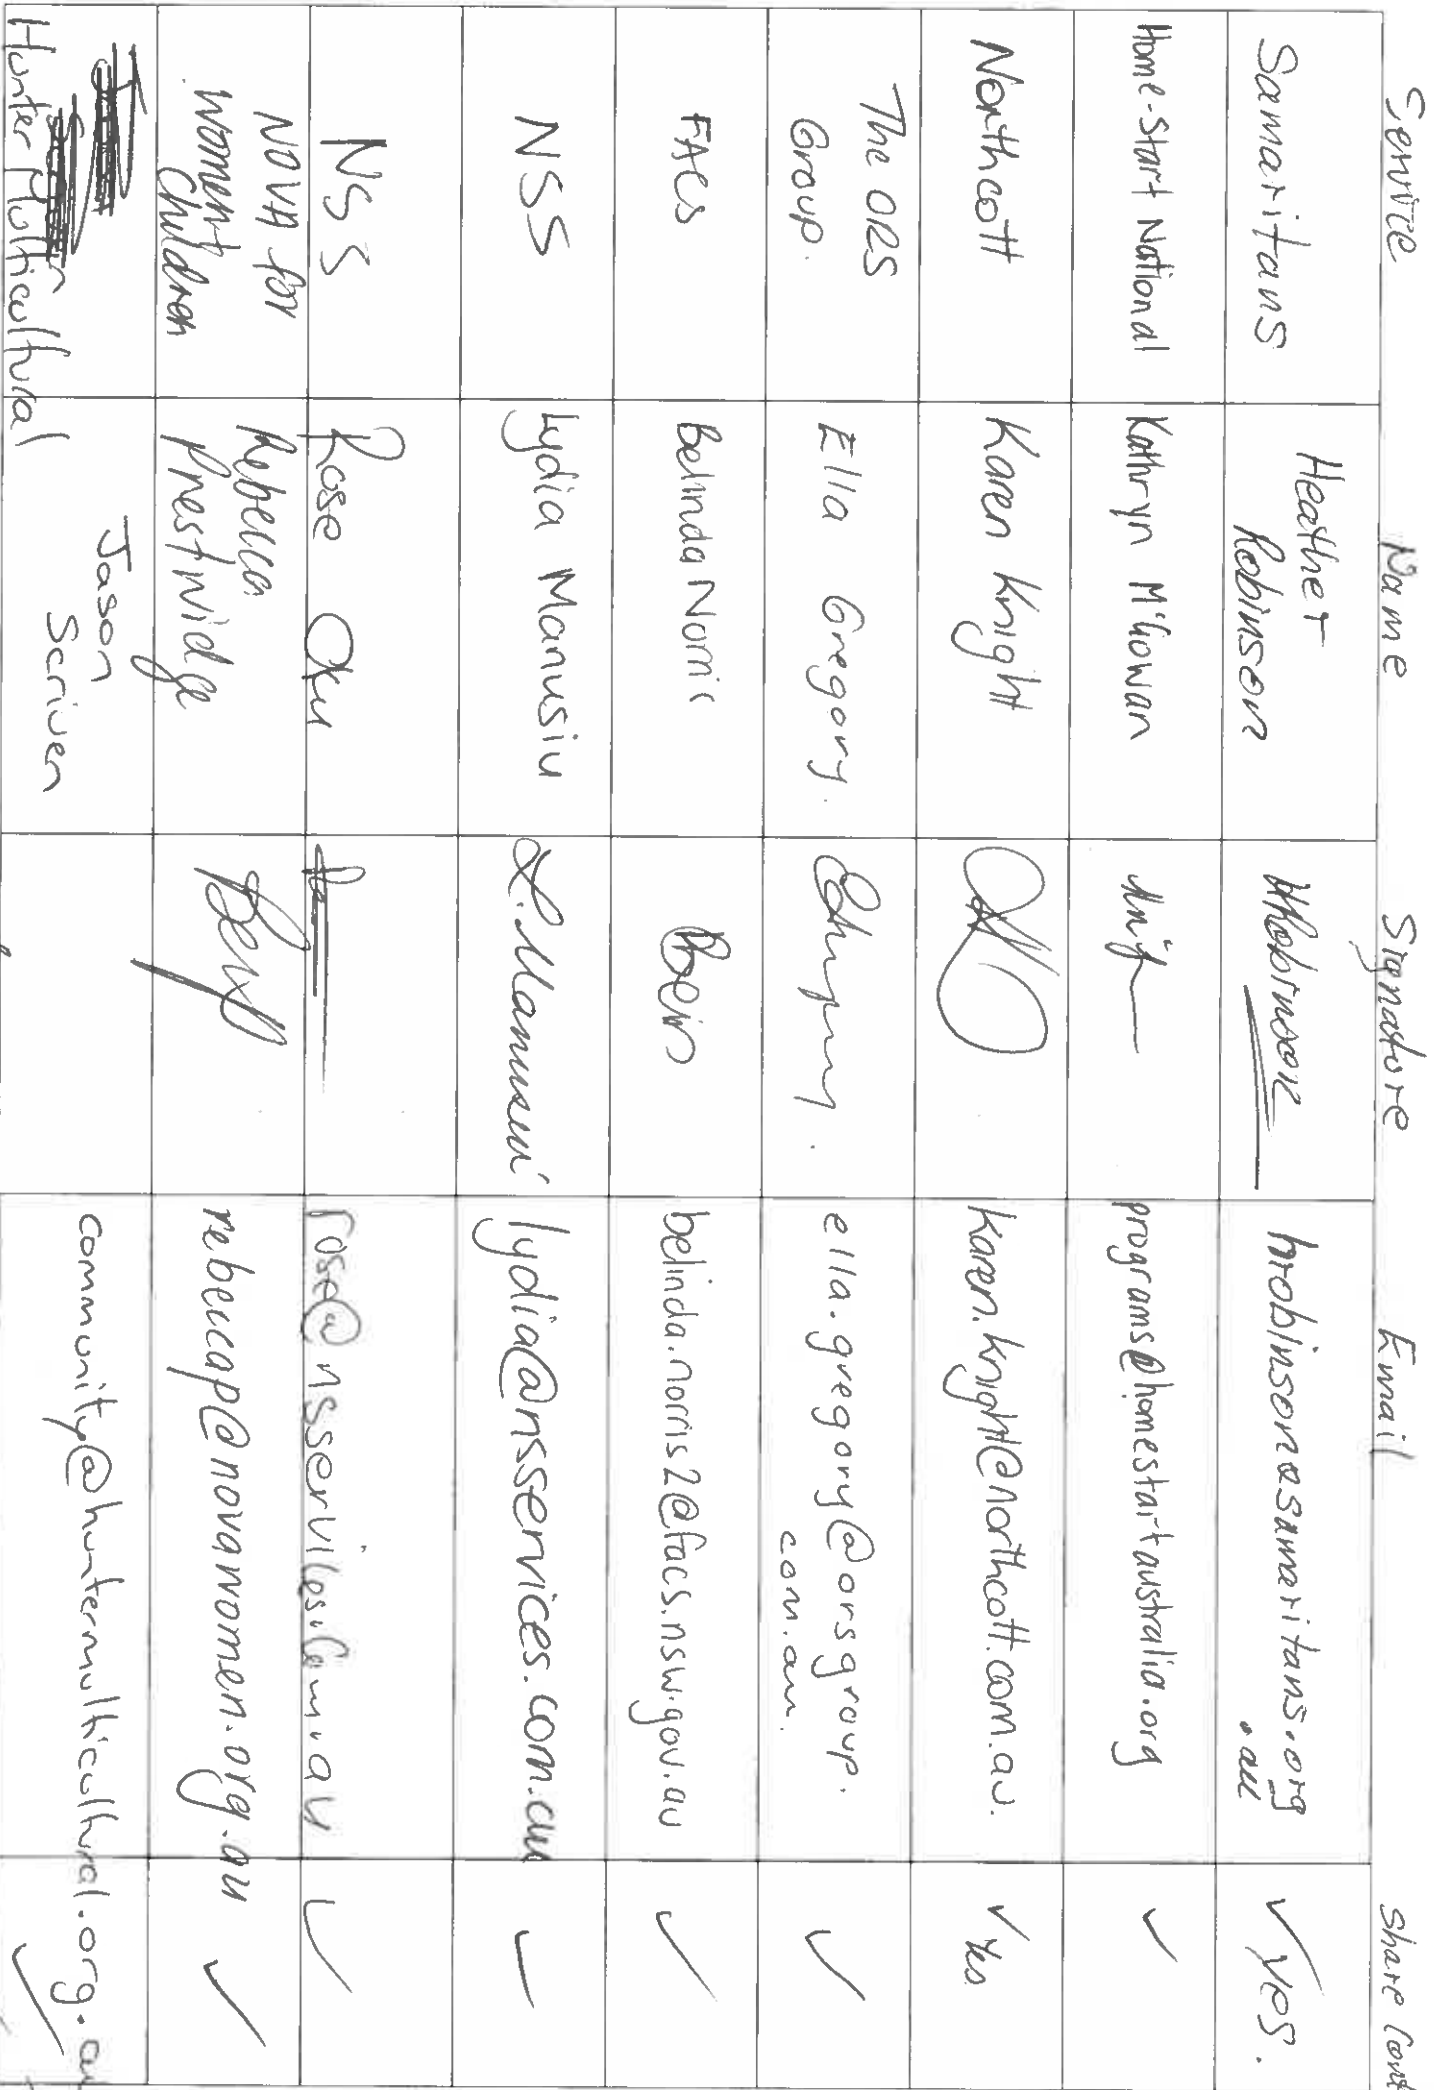 Service Name Signature Email Share Cont
Samaritans Heather Robinson HRobinson hrobinson@samaritans.org
.au ✓ Yes.
Home-Start National Kathryn McGowan programs@homestartaustralia.org ✓
Northcott Karen Knight karen.knight@northcott.com.au. ✓ Yes
The ORS
Group. Ella Gregory. ella.gregory@orsgroup.
com.au. ✓
FACS Belinda Norris belinda.norris2@facs.nsw.gov.au ✓
NSS Lydia Manusiu L.Manusiu lydia@nsservices.com.au ✓
NSS Rose Oku rose@nsservices.com.au ✓
NOVA for
Women &
Children Rebecca
Prestwidge rebeccap@novawomen.org.au ✓
Hunter Multicultural Jason
Scriven community@huntermulticultural.org.au ✓